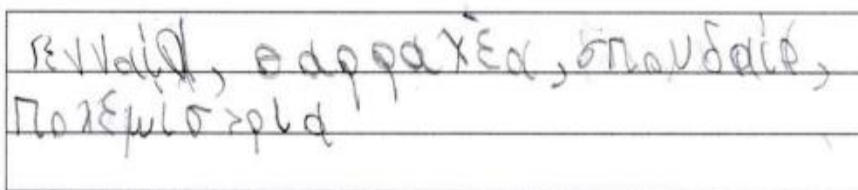 γενναία, θαρραλέα, σπουδαία,
πολεμίστρια